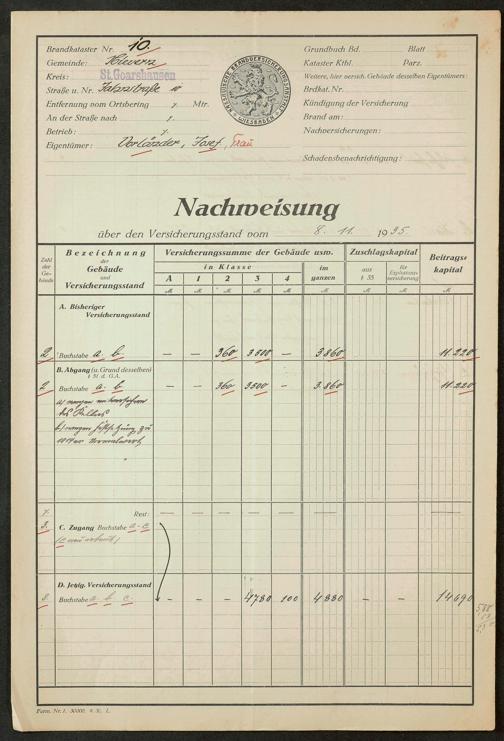 Brandkataster Nr. 10.
Gemeinde:
Kreis: St. Goarshausen
Straße u. Nr.
Entfernung vom Ortsbering Mtr.
An der Straße nach
Betrieb:
Eigentümer: Vorländer, Josef, Frau
NASSAUISCHE BRANDVERSICHERUNGSANSTALT WIESBADEN
Grundbuch Bd. Blatt
Kataster Ktbl. Parz.
Weitere, hier versich. Gebäude desselben Eigentümers:
Brdkat. Nr.
Kündigung der Versicherung
Brand am:
Nachversicherungen:
Schadensbenachrichtigung:
Nachweisung
über den Versicherungsstand vom 8. 11. 1935
Zahl der Gebäude
Bezeichnung der Gebäude und Versicherungsstand
Versicherungssumme der Gebäude usw.
in Klasse
A 1 2 3 4 im ganzen
Zuschlagskapital
aus § 35
für Explosionsversicherung
Beitragskapital
M M M M M M M M M
A. Bisheriger Versicherungsstand
2 Buchstabe a. b. — — 360 3500 — 3.860 11.220
B. Abgang (u. Grund desselben)
§ 31 d. G.A.
2 Buchstabe a. b — — 360 3500 — 3.860 11.220
Rest: — — — — — — —
3. C. Zugang Buchstabe a-c
D. Jetzig. Versicherungsstand
3. Buchstabe a b c — — — 4780 100 4 880 — — 14690
Form. Nr. 1. 30000. 4. 31. L.